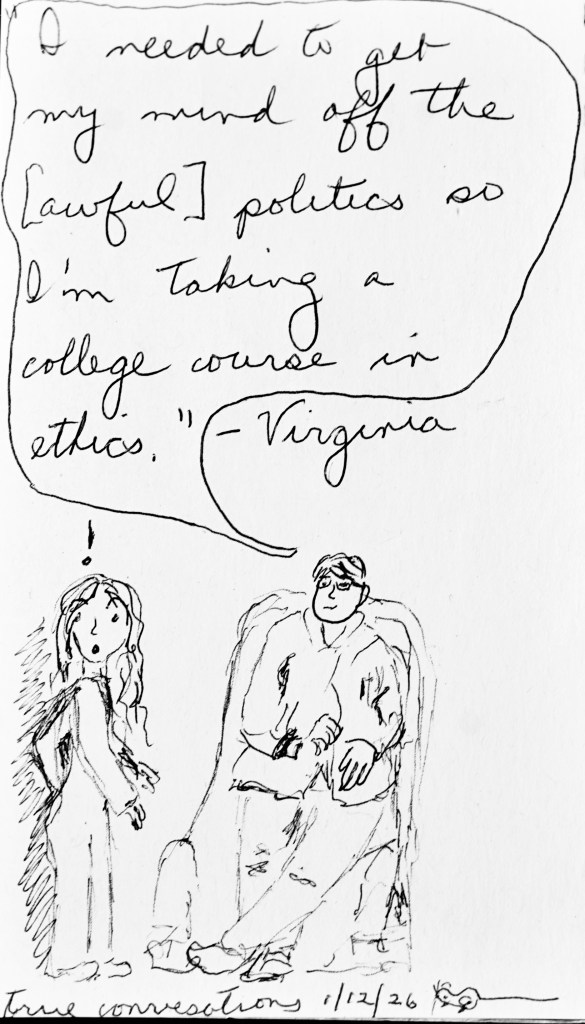 "I needed to get
my mind off the
[awful] politics so
I'm taking a
college course in
ethics." - Virginia
!
true convesations 1/12/26